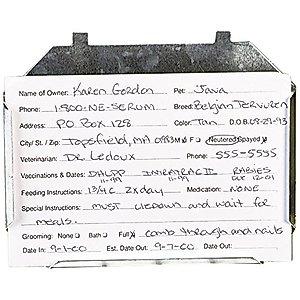 Name of Owner: Karen Gordon Pet: Java
Phone: 1-800-NE-SERUM Breed: Belgian Tervuren
Address: P.O. Box 128 Color: Tan D.O.B. 09-29-93
City/ St. / Zip: Topsfield, MA 01983 M F Neutered Spayed
Veterinarian: Dr. Ledoux Phone: 555-5555
Vaccinations & Dates: DHLPP 11-99 INTRATRAC II 11-99 RABIES DUE 12-01
Feeding Instructions: 1 3/4 C 2x day Medication: NONE
Special Instructions: must liedown and wait for
meals.
Grooming: None Bath Full comb through and nails
Date In: 9-1-00 Est. Date Out: 9-7-00 Date Out: